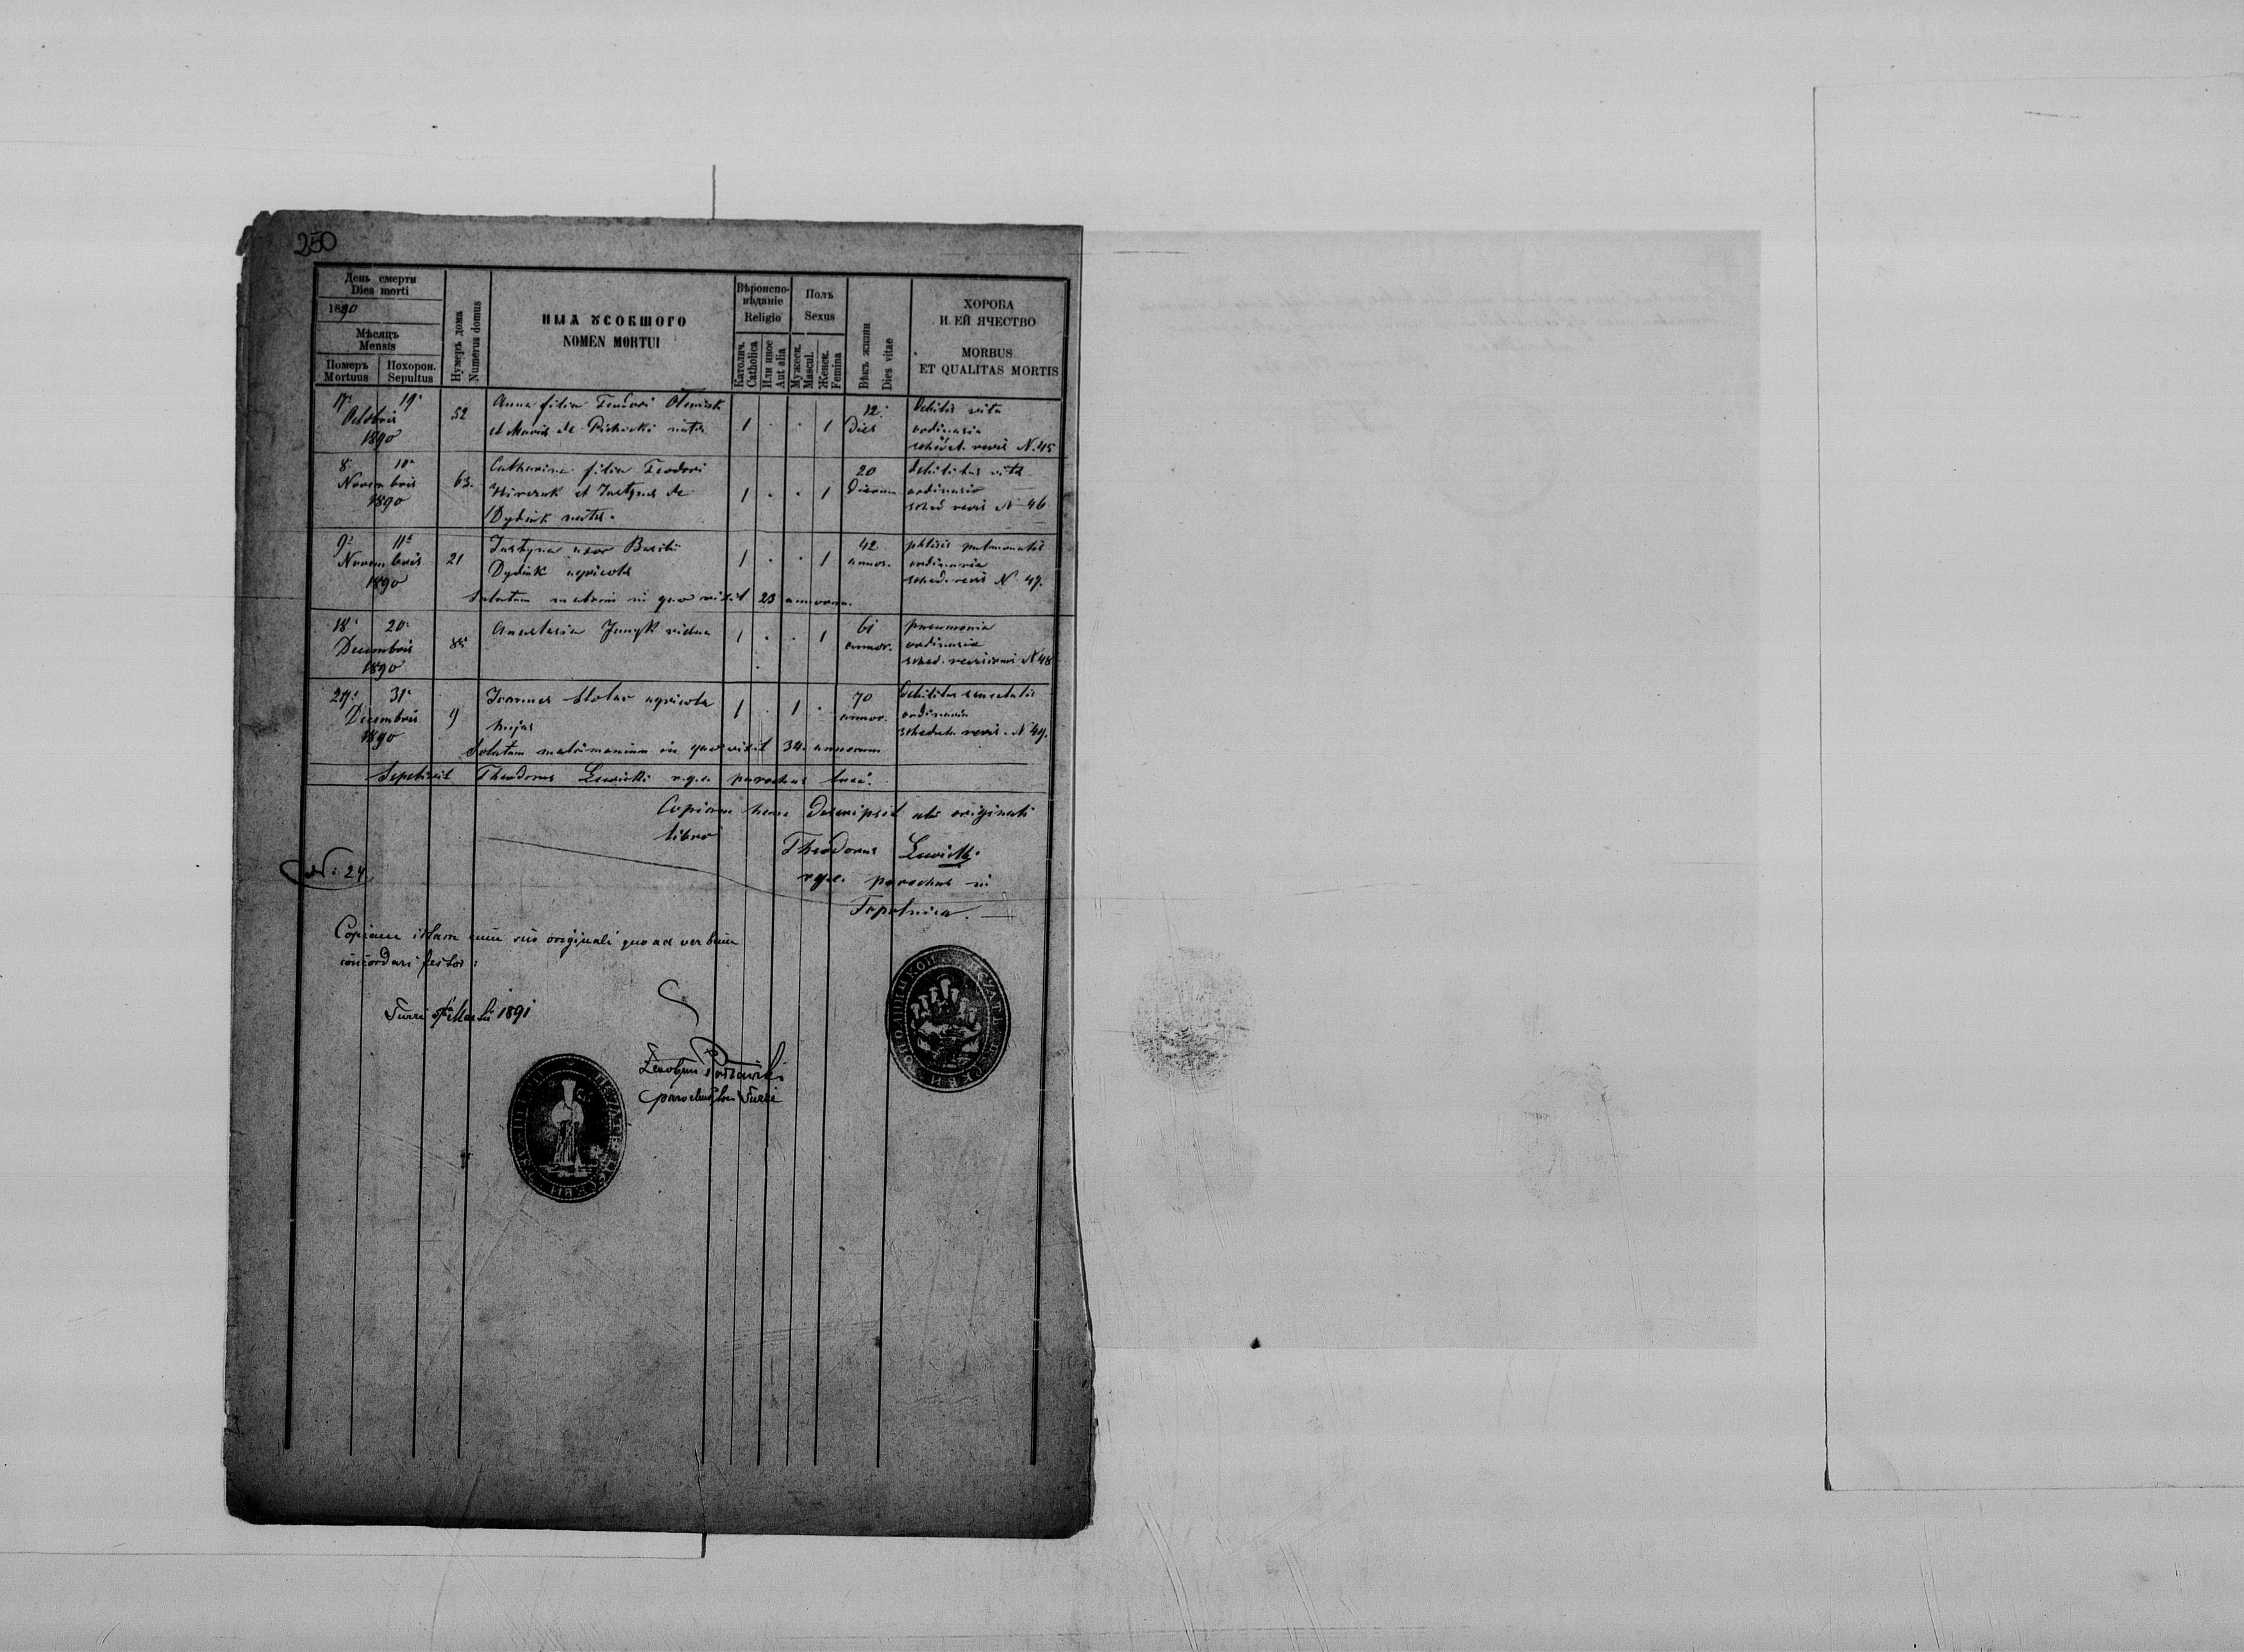 250
День смерти
Dies morti
1890
Мѣсяцъ
Mensis
Померъ
Mortuus
Похорон.
Sepultus
Нумеръ дома
Numerus domus
ИМА УСОПШОГО
NOMEN MORTUI
Вѣроиспо-
вѣданіе
Religio
Католич.
Catholica
Или иное
Aut alia
Полъ
Sexus
Мужеск.
Mascul.
Женск.
Femina
Вѣкъ жизни
Dies vitae
ХОРОБА
И ЕЙ ЯЧЕСТВО
MORBUS
ET QUALITAS MORTIS
17. 19.
Octobris
1890
52
Anna filia Teodori
et Maria de nata
1 . . 1
12.
dies
debilit. vita
ordinaria
sched. revis N. 45
8. 10.
Novembris
1890
63.
Catharina filia Teodori
et Justyna de
Dydiuk nata.
1 . . 1
20
dierum
debilitas vita
ordinaria
sched revis N 46
9. 11.
Novembris
1890
21
Justyna uxor Basilii
Dydiuk agricola
1 . . 1
42
annor.
phtisis pulmonalis
ordinaria
sched. revis N 47.
Solutum matrim in quo vixit 23 annorum.
18. 20.
Decembris
1890
85
Anastasia vidua
1 . . 1
61
annor.
pneumonia
ordinaria
sched. revisionis N 48
29. 31.
Decembris
1890
9
Joannes Stolar agricola
hujas
1 . 1 .
70
annor.
debilitas senectutis
ordinaria
schedula revis. N 49.
Solutum matrimonium in quo vixit 34. annorum
Sepelivit Theodorus Lewicki r.g.c. parochus loci.
Copiam hanc descripsit ab originali
libro
Theodorus Lewicki
r.g.c. parochus in
Topolnica.
N: 24
Copiam istam cum suo originali quo ad verbum
concordari testor:
1891
Zenobius
parochus loci